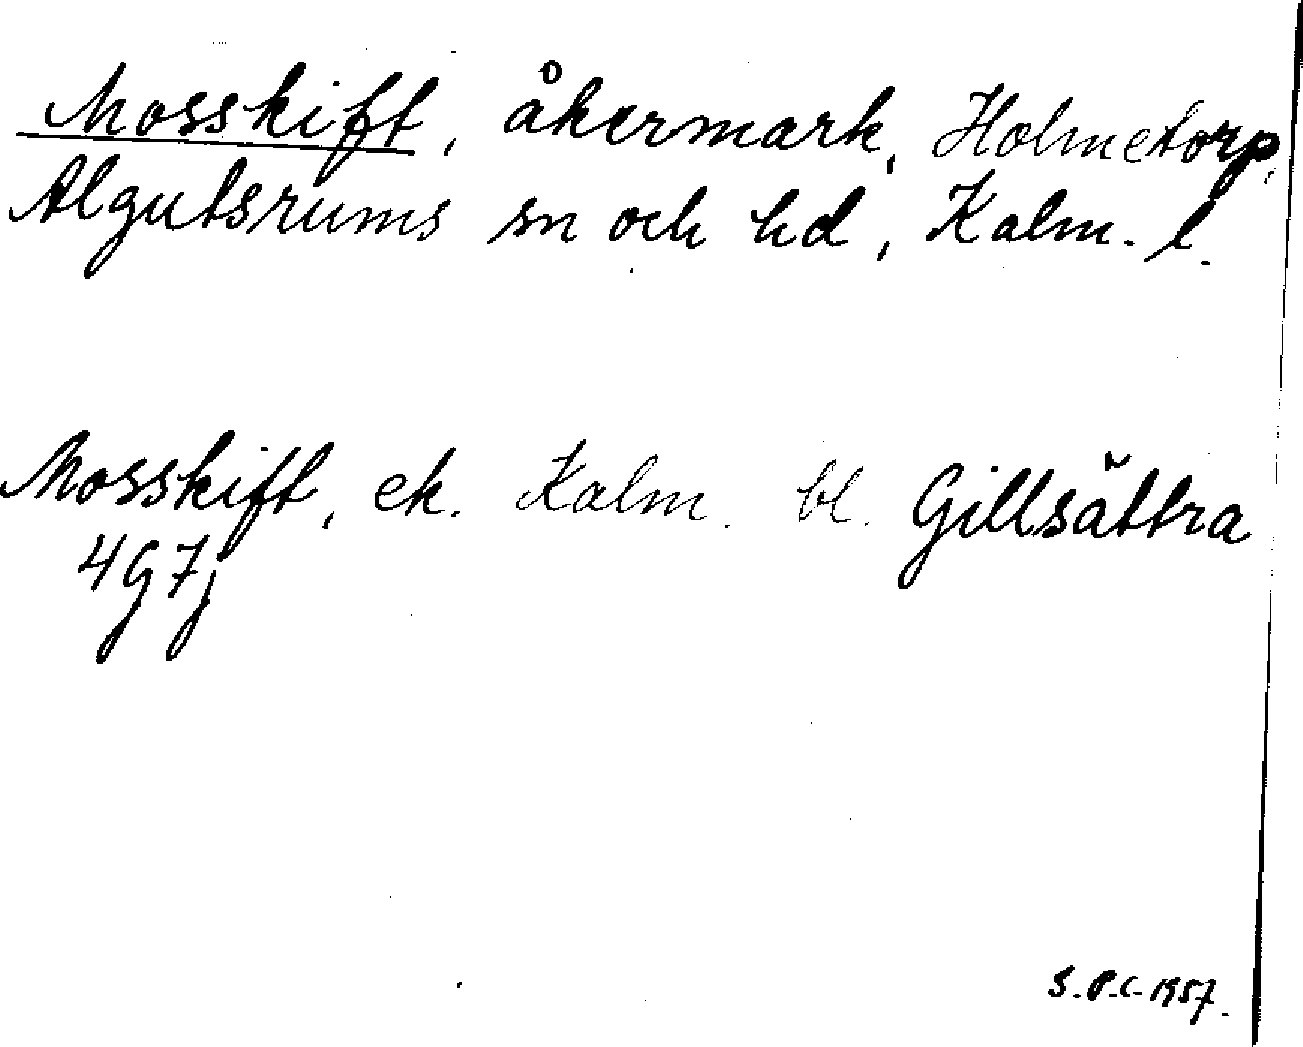 Mosskift, åkermark, Holmetorp,
Algutsrums sn och hd, Kalm. l.
Mosskift, ek. Kalm. bl. Gillsättra
4G7j
S.P.C. 1957.